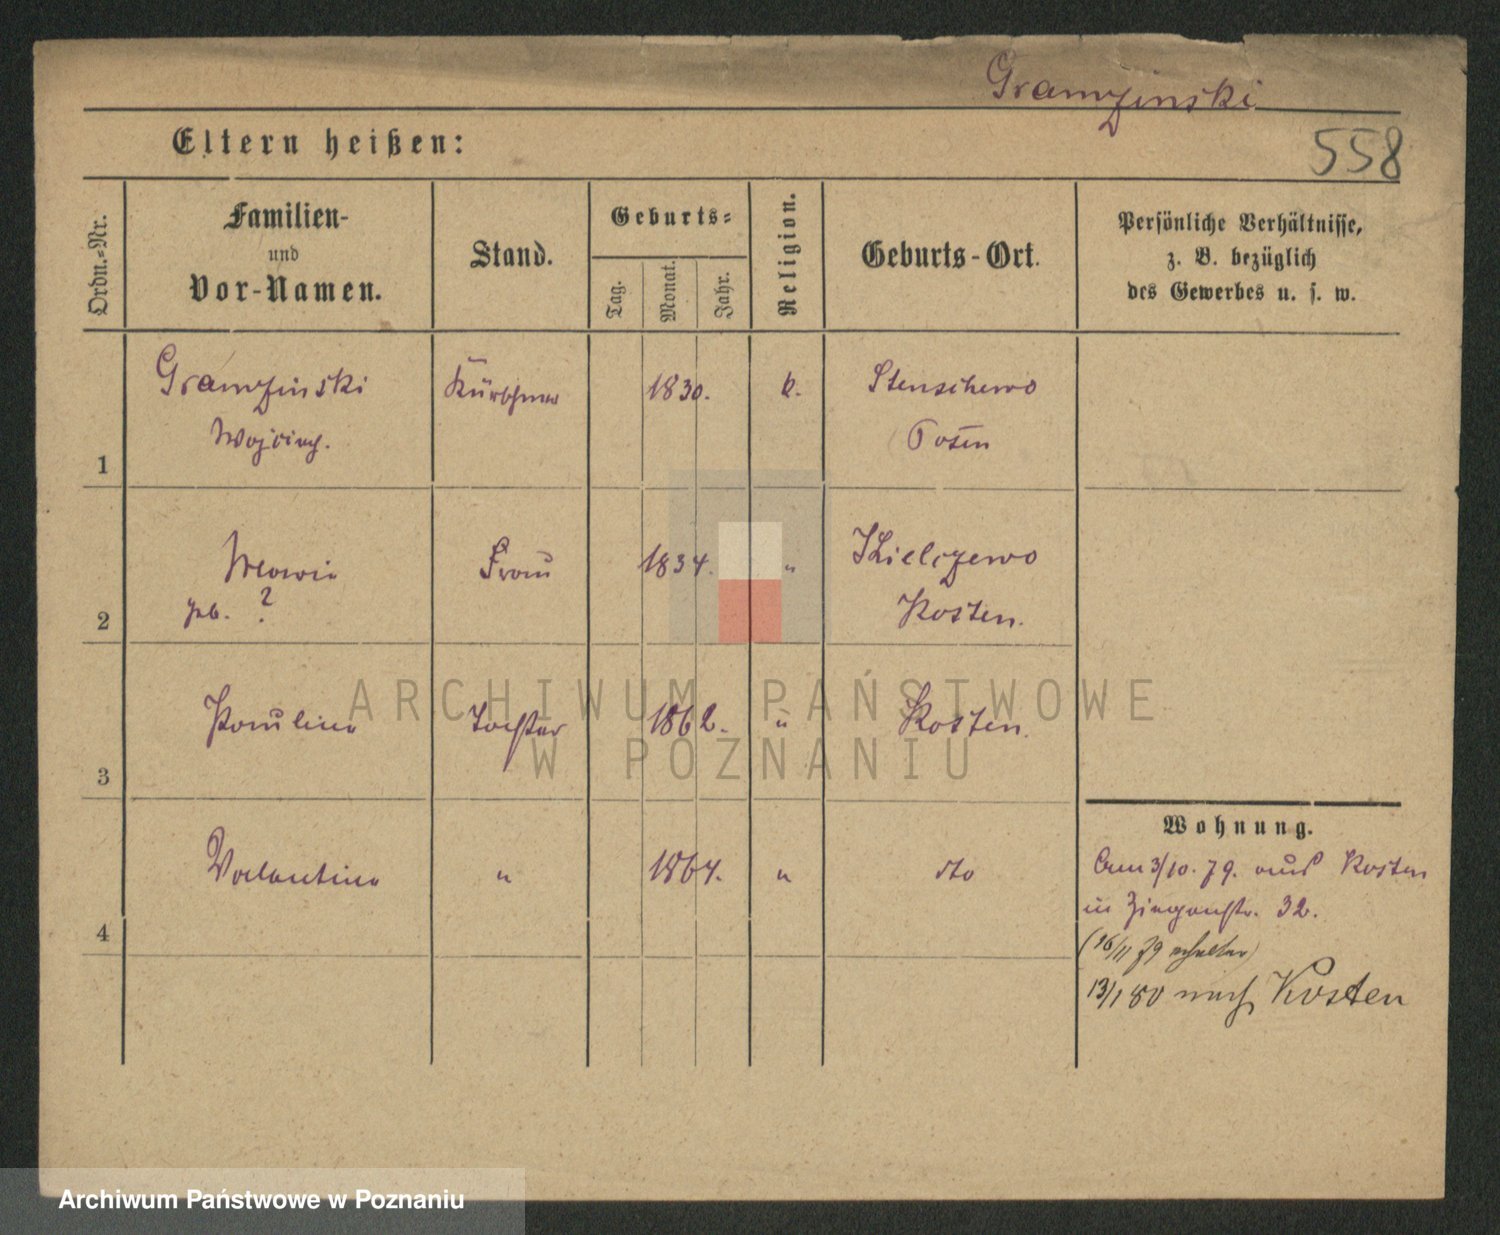 Gramzinski
558
Eltern heißen:
Ordn.-Nr.
Familien-
und
Vor-Namen.
Stand.
Geburts-
Tag.
Monat.
Jahr.
Religion.
Geburts-Ort.
Persönliche Verhältnisse,
z. B. bezüglich
des Gewerbes u. s. w.
1
Gramzinski
Wojciech.
Kürschner
1830.
k.
Stenschewo
Posen
2
Marie
geb. ?
Frau
1834.
"
Kielczewo
Kosten.
3
Pauline
Tochter
1862.
"
Kosten.
4
Valentine
"
1864.
"
dto
Wohnung.
Am 3/10. 79. aus Kosten
in Ziegenstr. 32.
(16/11 79 erhalten)
13/1 80 nach Kosten
ARCHIWUM PAŃSTWOWE
W POZNANIU
Archiwum Państwowe w Poznaniu